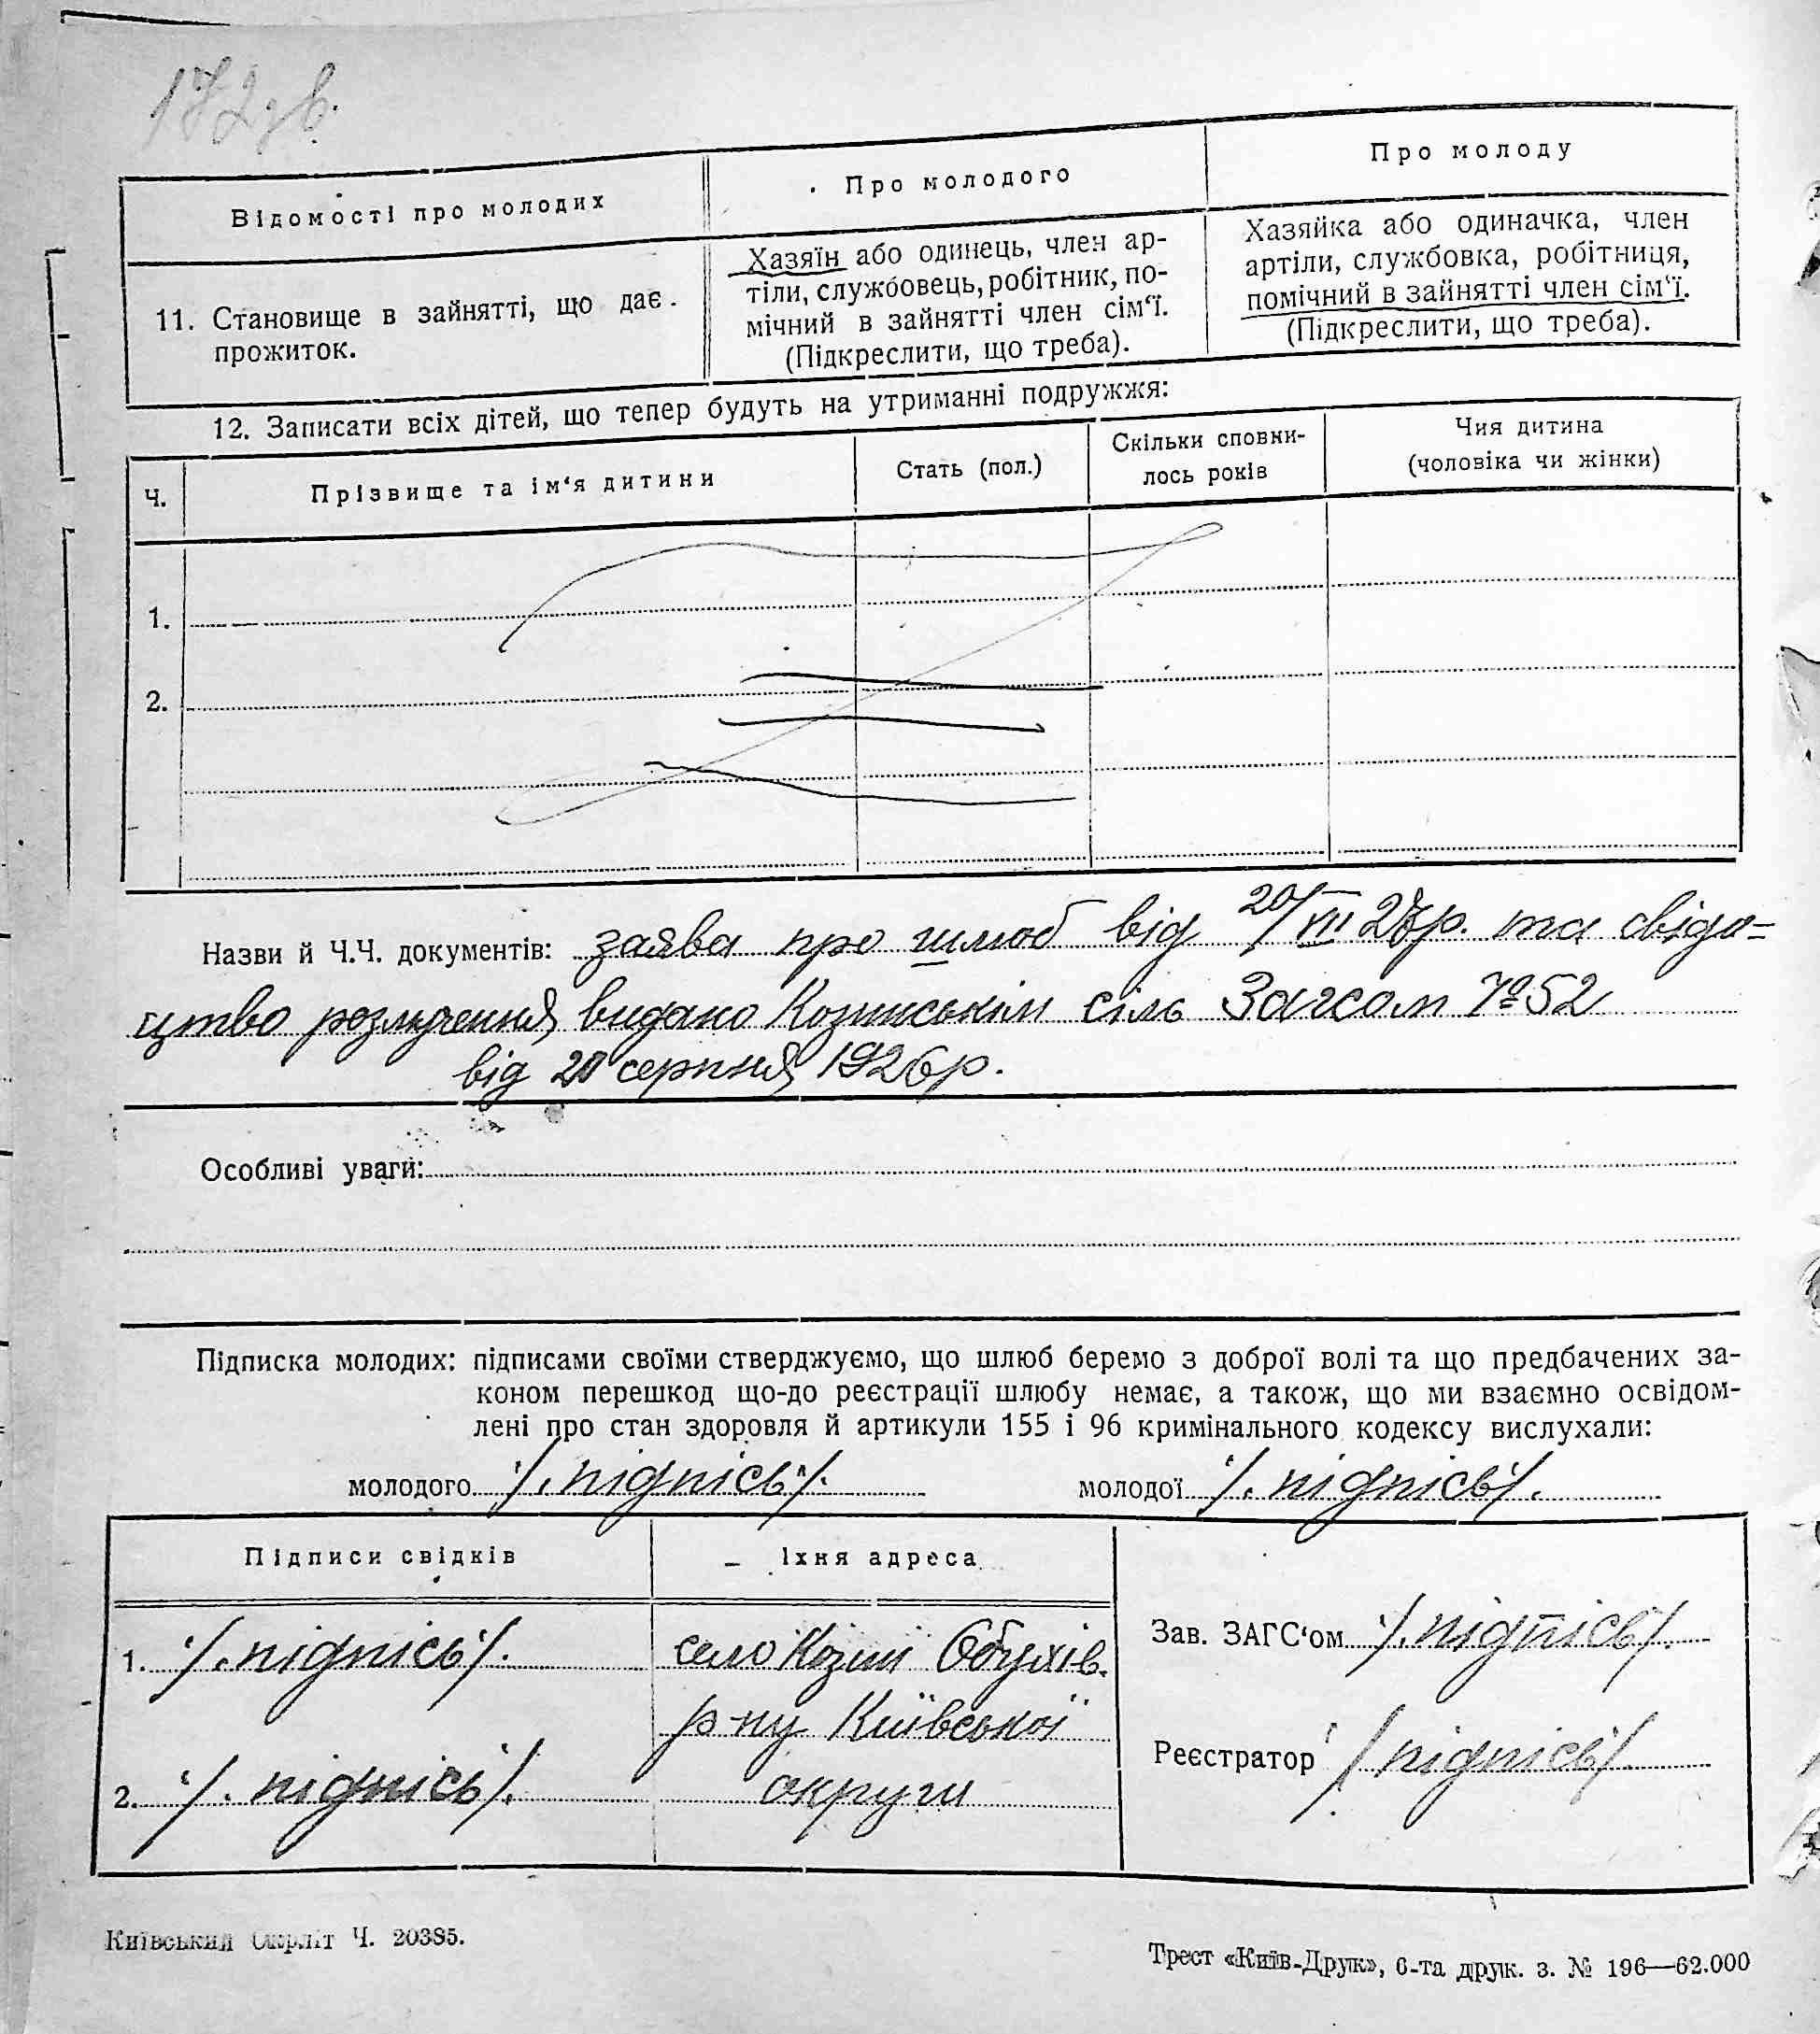 172 зв.
Відомості про молодих
Про молодого
Про молоду
11. Становище в зайнятті, що дає
прожиток.
Хазяїн або одинець, член ар-
тіли, службовець, робітник, по-
мічний в зайнятті член сім'ї.
(Підкреслити, що треба).
Хазяйка або одиначка, член
артіли, службовка, робітниця,
помічний в зайнятті член сім'ї.
(Підкреслити, що треба).
12. Записати всіх дітей, що тепер будуть на утриманні подружжя:
Ч.
Прізвище та ім'я дитини
Стать (пол.)
Скільки сповни-
лось років
Чия дитина
(чоловіка чи жінки)
1.
2.
Назви й Ч.Ч. документів: заява про шлюб від 20/VIII 26р. та свідо=
цтво розлучення, видано Козинським сіль Загсом № 52
від 20 серпня, 1926р.
Особливі уваги:
Підписка молодих: підписами своїми стверджуємо, що шлюб беремо з доброї волі та що предбачених за-
коном перешкод що-до реєстрації шлюбу немає, а також, що ми взаємно освідом-
лені про стан здоровля й артикули 155 і 96 кримінального кодексу вислухали:
молодого /. підпісь/. молодої /. підпісь/.
Підписи свідків
Їхня адреса
1. /. підпісь/.
село Козин Обухів.
р-ну Київської
2. /. підпісь/.
округи
Зав. ЗАГС'ом /. підпісь/.
Реєстратор / підпісь/.
Київський Окрліт Ч. 20385.
Трест «Київ-Друк», 6-та друк. з. № 196—62.000